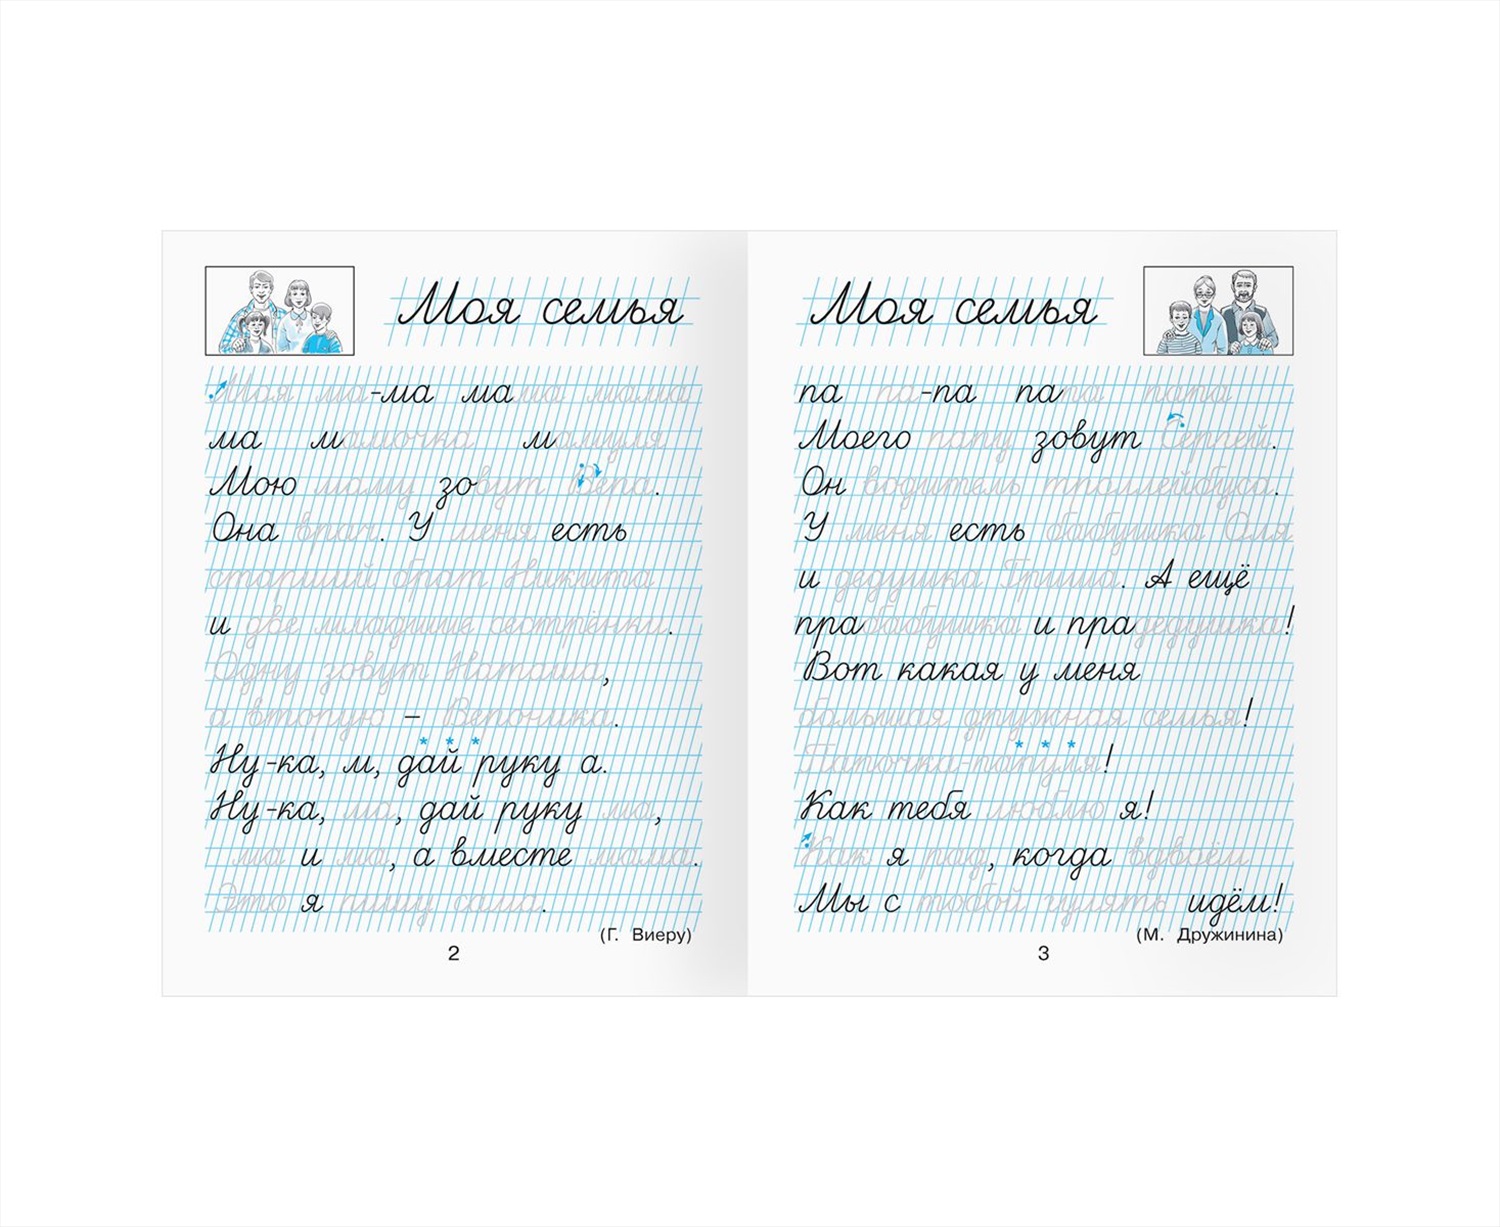 Моя семья
Моя ма-ма мама мама
ма мамочка мамуля
Мою маму зовут Вера.
Она врач. У меня есть
старший брат Никита
и две младшие сестрёнки.
Одну зовут Наташа,
а вторую – Вероника.
* * *
Ну-ка, м, дай руку а.
Ну-ка, ма, дай руку ма,
ма и ма, а вместе мама.
Это я пишу сама.
(Г. Виеру)
2
Моя семья
па па-па папа папа
Моего папу зовут Сергей.
Он водитель троллейбуса.
У меня есть бабушка Оля
и дедушка Гриша. А ещё
прабабушка и прадедушка!
Вот какая у меня
большая дружная семья!
* * *
Папочка-папуля!
Как тебя люблю я!
Как я , когда вдвоём
Мы с тобой гулять идём!
(М. Дружинина)
3